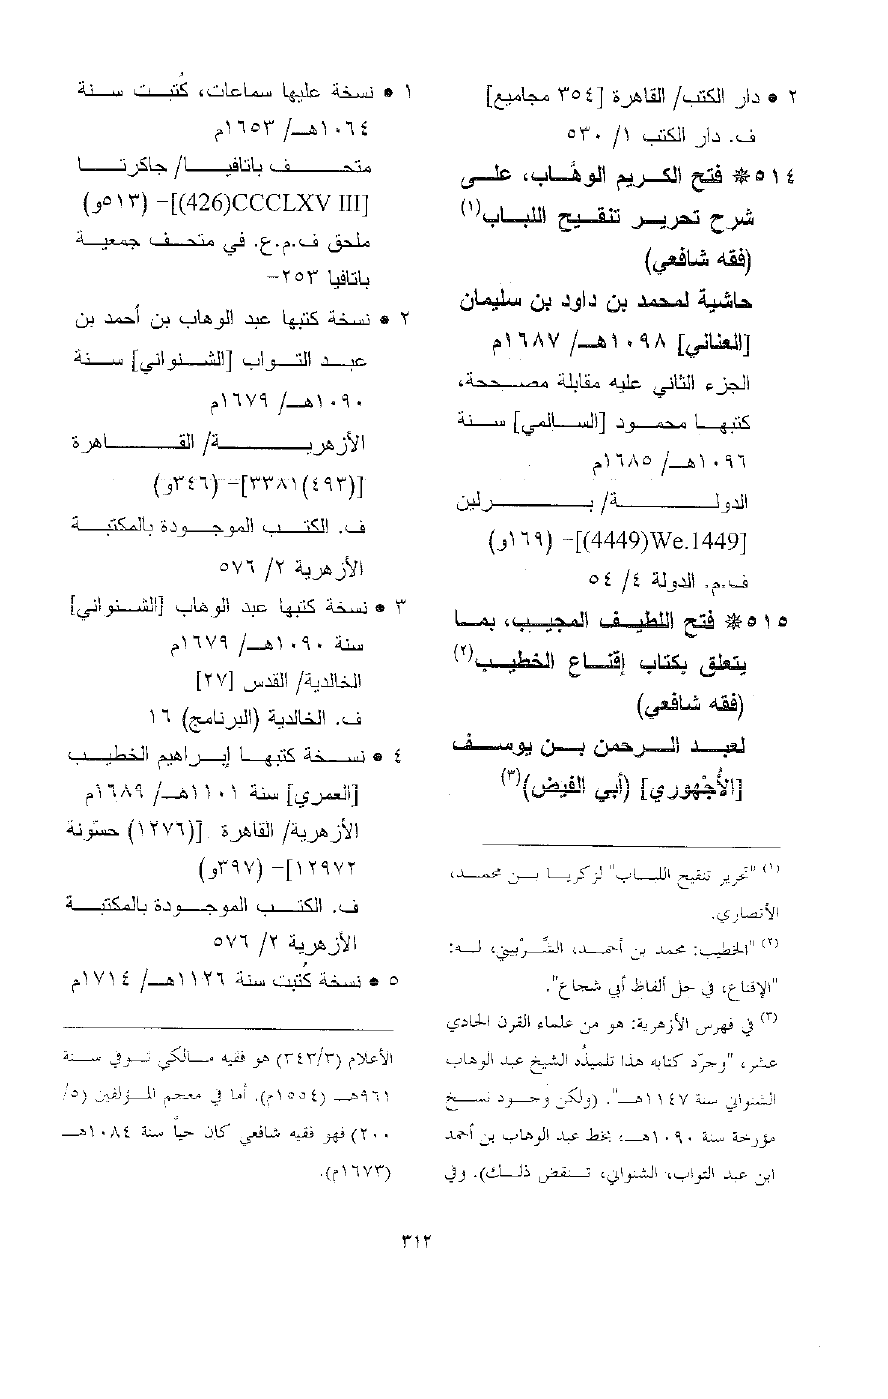 ٢ • دار الكتب/ القاهرة [٣٥٤ مجاميع]
ف. دار الكتب ١/ ٥٣٠
٥١٤ * فتح الكريم الوهَّاب، على
شرح تحرير تنقيح اللباب(١)
(فقه شافعي)
حاشية لمحمد بن داود بن سليمان
[العناني] ١٠٩٨هـ/ ١٦٨٧م
الجزء الثاني عليه مقابلة مصححة،
كتبها محمود [السالمي] سنة
١٠٩٦هـ/ ١٦٨٥م
الدولة/ برلين
[We.1449(4449)]- (١٦٩و)
ف.م. الدولة ٤/ ٥٤
٥١٥ * فتح اللطيف المجيب، بما
يتعلق بكتاب إقناع الخطيب(٢)
(فقه شافعي)
لعبد الرحمن بن يوسف
[الأُجْهوري] (أبي الفيض)(٣)
(١) "تحرير تنقيح اللباب" لزكريا بن محمد،
الأنصاري.
(٢) "الخطيب: محمد بن أحمد، الشَّرْبيني، له:
"الإقناع، في حل ألفاظ أبي شجاع".
(٣) في فهرس الأزهرية: هو من علماء القرن الحادي
عشر، "وجرّد كتابه هذا تلميذُه الشيخ عبد الوهاب
الشنواني سنة ١١٤٧هـ". (ولكن وجود نسخ
مؤرخة سنة ١٠٩٠هـ، بخط عبد الوهاب بن أحمد
ابن عبد التواب، الشنواني، تنقض ذلك). وفي
١ • نسخة عليها سماعات، كُتبت سنة
١٠٦٤هـ/ ١٦٥٣م
متحف باتافيا/ جاكرتا
[CCCLXV III(426)]- (٥١٣و)
ملحق ف.م.ع. في متحف جمعية
باتافيا ٢٥٣-
٢ • نسخة كتبها عبد الوهاب بن أحمد بن
عبد التواب [الشنواني] سنة
١٠٩٠هـ/ ١٦٧٩م
الأزهرية/ القاهرة
[(٤٩٣)٣٣٨١]- (٣٤٦و)
ف. الكتب الموجودة بالمكتبة
الأزهرية ٢/ ٥٧٦
٣ • نسخة كتبها عبد الوهاب [الشنواني]
سنة ١٠٩٠هـ/ ١٦٧٩م
الخالدية/ القدس [٢٧]
ف. الخالدية (البرنامج) ١٦
٤ • نسخة كتبها إبراهيم الخطيب
[العمري] سنة ١١٠١هـ/ ١٦٨٩م
الأزهرية/ القاهرة [(١٢٧٦) حسّونة
١٢٩٧٢]- (٣٩٧و)
ف. الكتب الموجودة بالمكتبة
الأزهرية ٢/ ٥٧٦
٥ • نسخة كُتبت سنة ١١٢٦هـ/ ١٧١٤م
الأعلام (٣٤٣/٣) هو فقيه مالكي توفي سنة
٩٦١هـ (١٥٥٤م). أما في معجم المؤلفين (٥/
٢٠٠) فهو فقيه شافعي كان حياً سنة ١٠٨٤هـ
(١٦٧٣م).
٣١٢